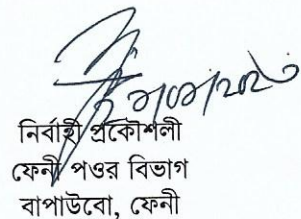 নির্বাহী প্রকৌশলী
ফেনী পওর বিভাগ
বাপাউবো, ফেনী